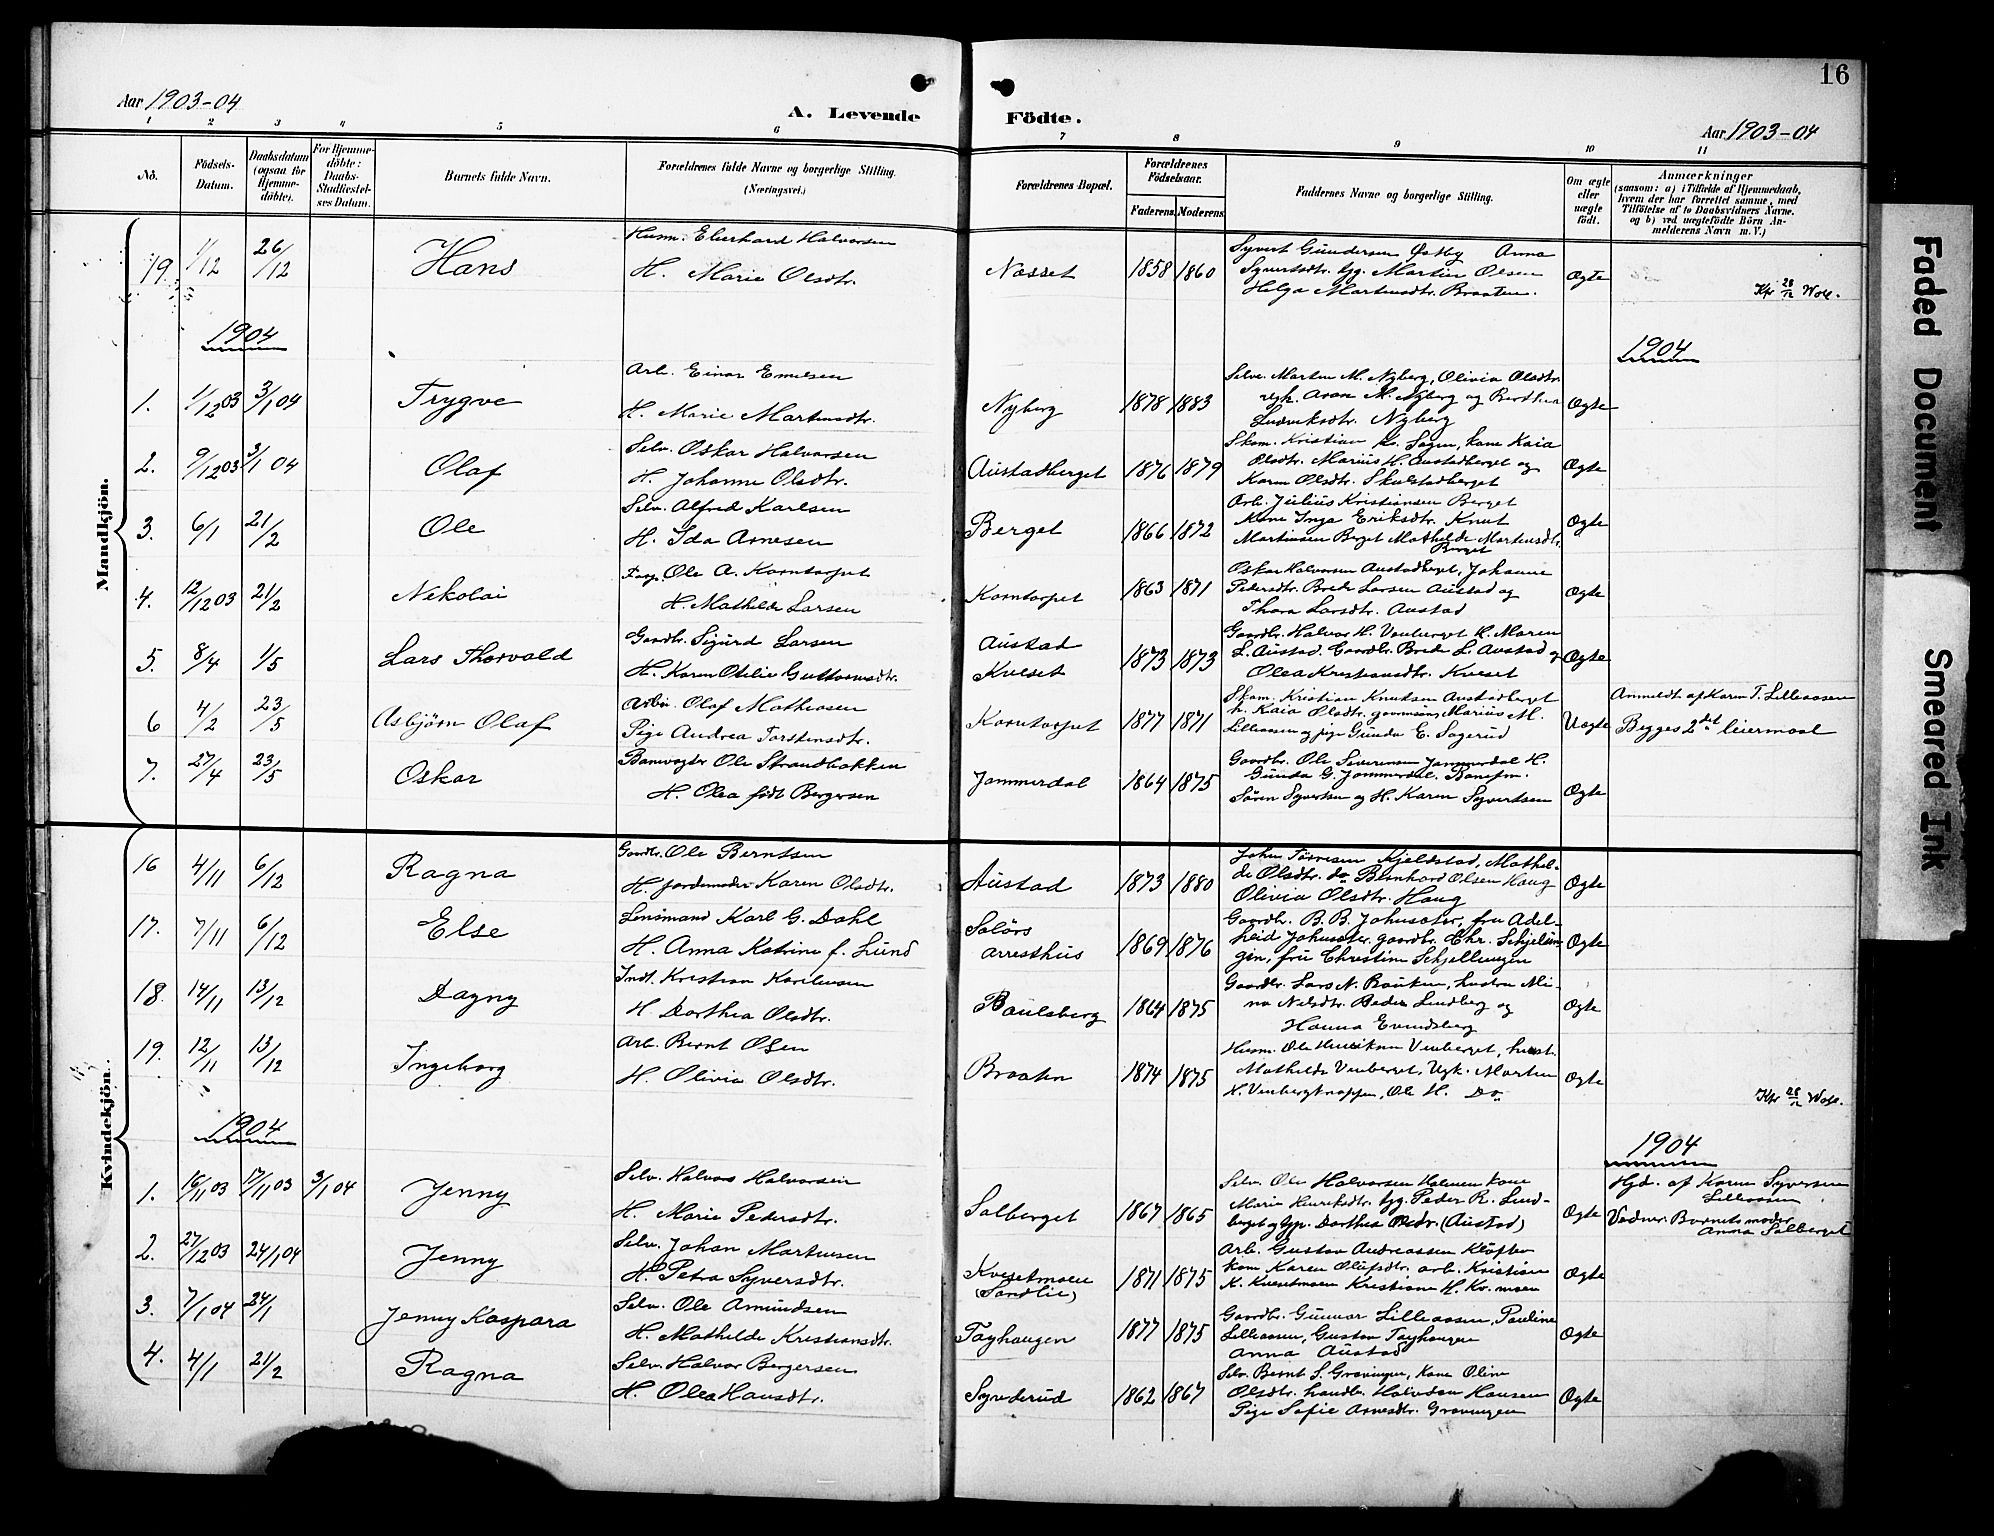 16
Aar 1903-04
A. Levende Födte.
Aar 1903-04
1 2 3 4 5 6 7 8 9 10 11
No.
Födsels-Datum.
Daabsdatum (ogsaa for Hjemme-döbte).
For Hjemme-döbte: Daabs-Stadfæstel-ses Datum.
Barnets fulde Navn.
Forældrenes fulde Navne og borgerlige Stilling. (Næringsvei.)
Forældrenes Bopæl.
Forældrenes Födselsaar.
Faderens. Moderens.
Faddernes Navne og borgerlige Stilling.
Om ægte eller uægte födt.
Anmærkninger
(saasom: a) i Tilfælde af Hjemmedaab, hvem der har forrettet samme, med Tilföielse af to Daabsvidners Navne, og b) ved uægtefödte Börn An-melderens Navn m. V.)
Mandkjön.
19. 1/12 26/12 Hans
Husm. Eberhard Halvorsen
H. Marie Olsdtr.
Næsset 1858 1860
Syvert Gundersen Østby Anna
Syvertsdtr. Martin Olsen
Helga Martinsdtr. Braaten.
Ægte
1904
1904
1. 1/12 03 3/1 04 Trygve
Arb. Einar Emilsen
H. Marie Martinsdtr.
Nyberg 1878 1883
Selv. Martin M. Nyberg, Olivia Olsdtr.
Arne M. Nyberg og Berthea
Ludviksdtr. Nyberg
Ægte
2. 9/12 03 3/1 04 Olaf
Selv. Oskar Halvorsen
H. Johanne Olsdtr.
Austadberget 1876 1879
Skom. Kristian Kn. Sagen, kone Kaia
Olsdtr. Marius H. Austadberget og
Karen Olsdtr. Skulstadberget
Ægte
3. 6/1 21/2 Ole
Selv. Alfred Karlsen
H. Ida Arnesen
Berget 1866 1872
Arb. Julius Kristiansen Berget
Kone Inga Eriksdtr. Knut
Martinsen Berget Mathilde Martinsdtr.
Berget
Ægte
4. 12/12 03 21/2 Nekolai
Ole A. Korntorpet
H. Mathilde Larsen
Korntorpet 1863 1871
Oskar Halvorsen Austadberget, Johanne
Pedersdtr. Brede Larsen Austad og
Thora Larsdtr. Austad
Ægte
5. 8/4 1/5 Lars Thorvald
Gaardbr. Sigurd Larsen
H. Karen Otilie Guttormsdtr.
Austad
Kveset
1873 1873
Gaardbr. Halvor H. Venberget H. Maren
L. Austad. Gaardbr. Brede L. Austad og
Olea Kristiansdtr. Kveset
Ægte
6 4/2 23/5 Asbjörn Olaf
Arbr. Olaf Matheasen
Pige Andrea Torstensdtr.
Korntorpet 1877 1871
Skom. Kristian Knutsen Austadberget
h. Kaia Olsdtr. Marius M.
Lilleaasen og pige Gunda E. Sagerud
Uægte
Anmeldt af Karen T. Lilleaasen
Begges 2det leiermaal
7. 27/4 23/5 Oskar
Banevogter Ole Strandbakken
H. Olea født Bergersen
Jammerdal 1864 1875
Gaardbr. Ole Severinsen Jammerdal H.
Gunda G. Jammerdal. Banefm.
Søren Syvertsen og H. Karen Syvertsen
Ægte
Kvindekjön.
16 4/11 6/12 Ragna
Gaardbr. Ole Berntsen
H. jordemoder Karen Olsdtr.
Austad 1873 1880
John Tørresen Kjeldstad, Mathil-
de Olsdtr. do Bernhard Olsen Haug
Olivia Olsdtr. Haug
Ægte
17. 7/11 6/12 Else
Lensmand Karl G. Dahl
H. Anna Katrine f. Lund
Solørs
arresthus
1869 1876
Gaardbr. B. B. Johnsæter, fru Adel-
heid Johnsæter, gaardbr. Chr. Schjellun-
gen, fru Christine Schjellungen
Ægte
18. 14/11 13/12 Dagny
Indl. Kristian Karelusen
H. Dorthea Olsdtr.
Baulsberg 1864 1875
Gaardbr. Lars N. Bauken, hustru Mi-
na Nilsdtr. Peder Lundberg og
Hanna Evindsberg
Ægte
19. 12/11 13/12 Ingeborg
Arb. Bernt Olsen
H. Olivia Olsdtr.
Braaten 1874 1875
Husm. Ole Henriksen Venberget, hust.
Mathilde Venberget, Ugk. Morten
H. Venbergknappen, Ole H. Do
Ægte
1904
1904
1. 16/11 03 17/11 03 3/1 04 Jenny
Selv. Halvor Halvorsen
H. Marie Pedersdtr.
Solberget 1867 1865
Selv. Ole Halvorsen Holmen kone
Marie Henriksdtr. Peder R. Lund-
berget og Dorthea Pedr. (Austad)
Ægte
Hjd. af Karen Syversen
Lilleaasen
Vidner. Barnets moder
Anna Solberget
2. 27/12 03 24/1 04 Jenny
Selv. Johan Martinsen
H. Petra Syversdtr.
Kvesetmoen
(Sandlie)
1871 1875
Arb. Gustav Andreassen Kløften
kone Karen Olufsdtr. arb. Kristian
K. Kvesetmoen Kristiane H. Kv. moen
Ægte
3. 7/1 04 24/1 Jenny Kaspara
Selv. Ole Amundsen
H. Mathilde Kristiansdtr.
Tayhaugen 1877 1875
Gaardbr. Gunnar Lilleaasen, Pauline
Lilleaasen, Gustav Tayhaugen
Anna Austad
Ægte
4. 4/1 21/2 Ragna
Selv. Halvor Bergersen
H. Olea Hansdtr.
Synderud 1862 1867
Selv. Bernt S. Gravningen, Kone Oline
Olsdtr. Halvdan Hansen
Pige Sofie Arnesdtr. Gravningen
Ægte
Faded Document
Smeared Ink